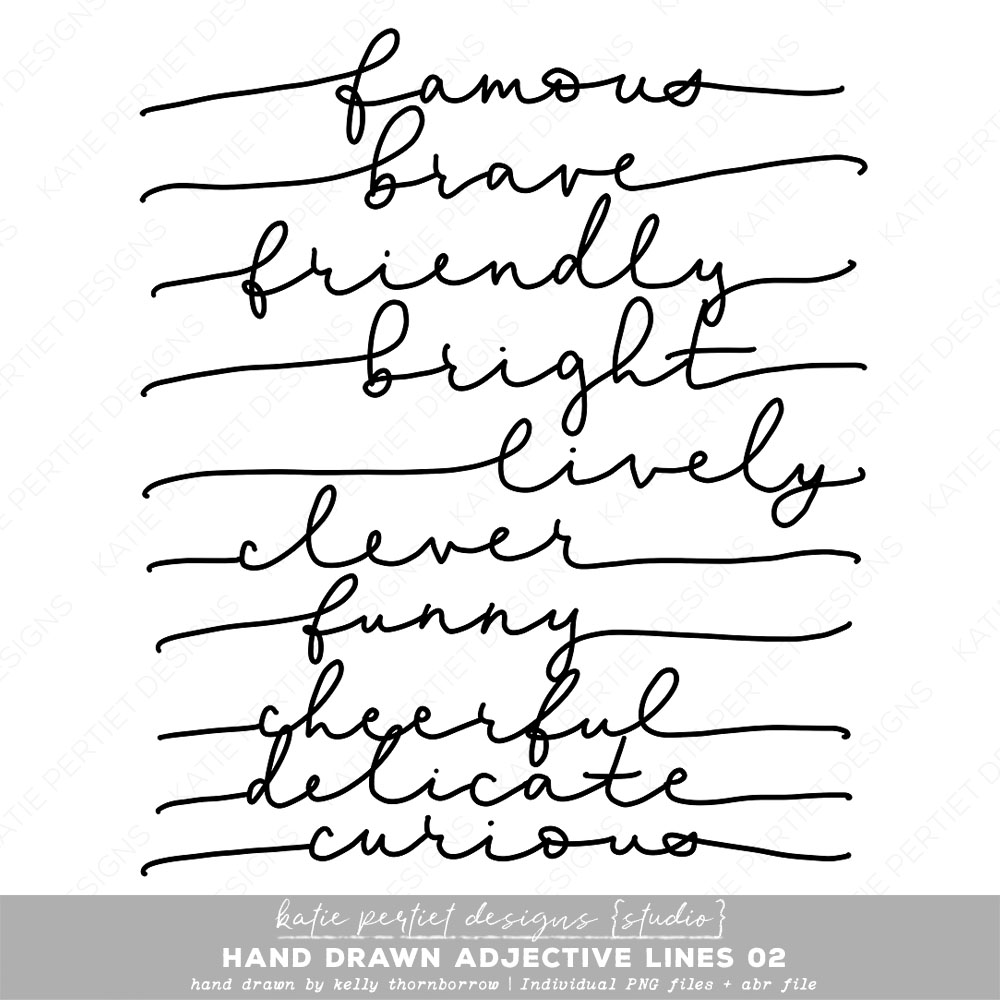 famous
brave
friendly
bright
lively
clever
funny
cheerful
delicate
curious
katie pertiet designs {studio}
HAND DRAWN ADJECTIVE LINES 02
hand drawn by kelly thornborrow | Individual PNG files + abr file